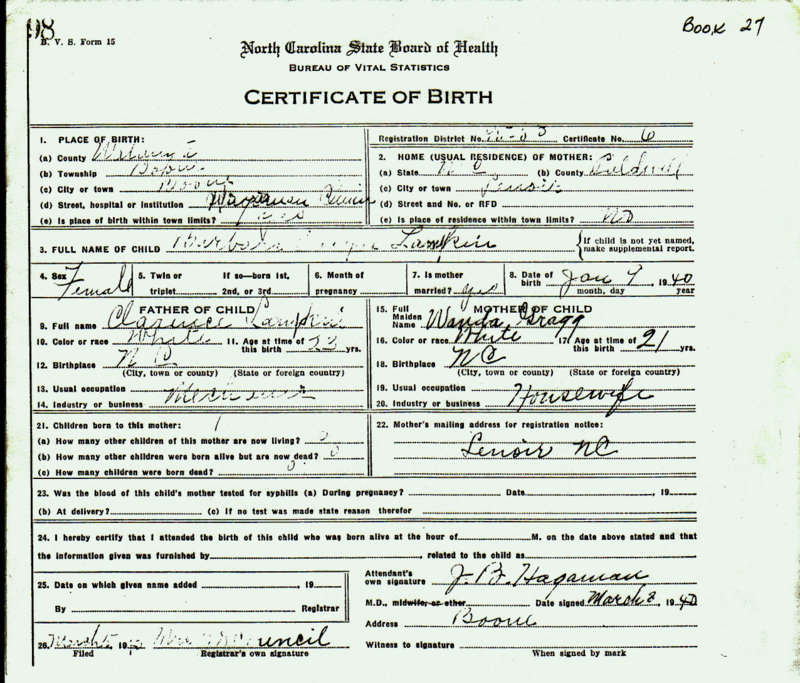 98
Book 27
B. V. S. Form 15
North Carolina State Board of Health
BUREAU OF VITAL STATISTICS
CERTIFICATE OF BIRTH
Registration District No. Certificate No. 6
1. PLACE OF BIRTH:
(a) County Watauga
(b) Township Boone
(c) City or town Boone
(d) Street, hospital or institution Hagaman Clinic
(e) Is place of birth within town limits? yes
2. HOME (USUAL RESIDENCE) OF MOTHER:
(a) State N C (b) County Caldwell
(c) City or town Lenoir
(d) Street and No. or RFD
(e) Is place of residence within town limits? No
3. FULL NAME OF CHILD Barbara Lampkin
{If child is not yet named, make supplemental report.
4. Sex Female
5. Twin or triplet If so—born 1st, 2nd, or 3rd.
6. Month of pregnancy
7. Is mother married? yes
8. Date of birth Jan 9, 1940
month, day year
FATHER OF CHILD
9. Full name Clarence Lampkin
10. Color or race White 11. Age at time of this birth 23 yrs.
12. Birthplace N C
(City, town or county) (State or foreign country)
13. Usual occupation
14. Industry or business Mechanic
MOTHER OF CHILD
15. Full Maiden Name Wanda Gragg
16. Color or race White 17. Age at time of this birth 21 yrs.
18. Birthplace NC
(City, town or county) (State or foreign country)
19. Usual occupation
20. Industry or business Housewife
21. Children born to this mother: 1
(a) How many other children of this mother are now living? 0
(b) How many other children were born alive but are now dead? 0
(c) How many children were born dead? 0
22. Mother's mailing address for registration notice:
Lenoir NC
23. Was the blood of this child's mother tested for syphilis (a) During pregnancy? Date , 19
(b) At delivery? (c) If no test was made state reason therefor
24. I hereby certify that I attended the birth of this child who was born alive at the hour of M. on the date above stated and that
the information given was furnished by , related to the child as
25. Date on which given name added , 19
By Registrar
Attendant's own signature J. B. Hagaman
M.D., midwife, or other Date signed March 8, 1940
Address Boone
26. March 5 19 Mrs Council
Filed Registrar's own signature
Witness to signature
When signed by mark